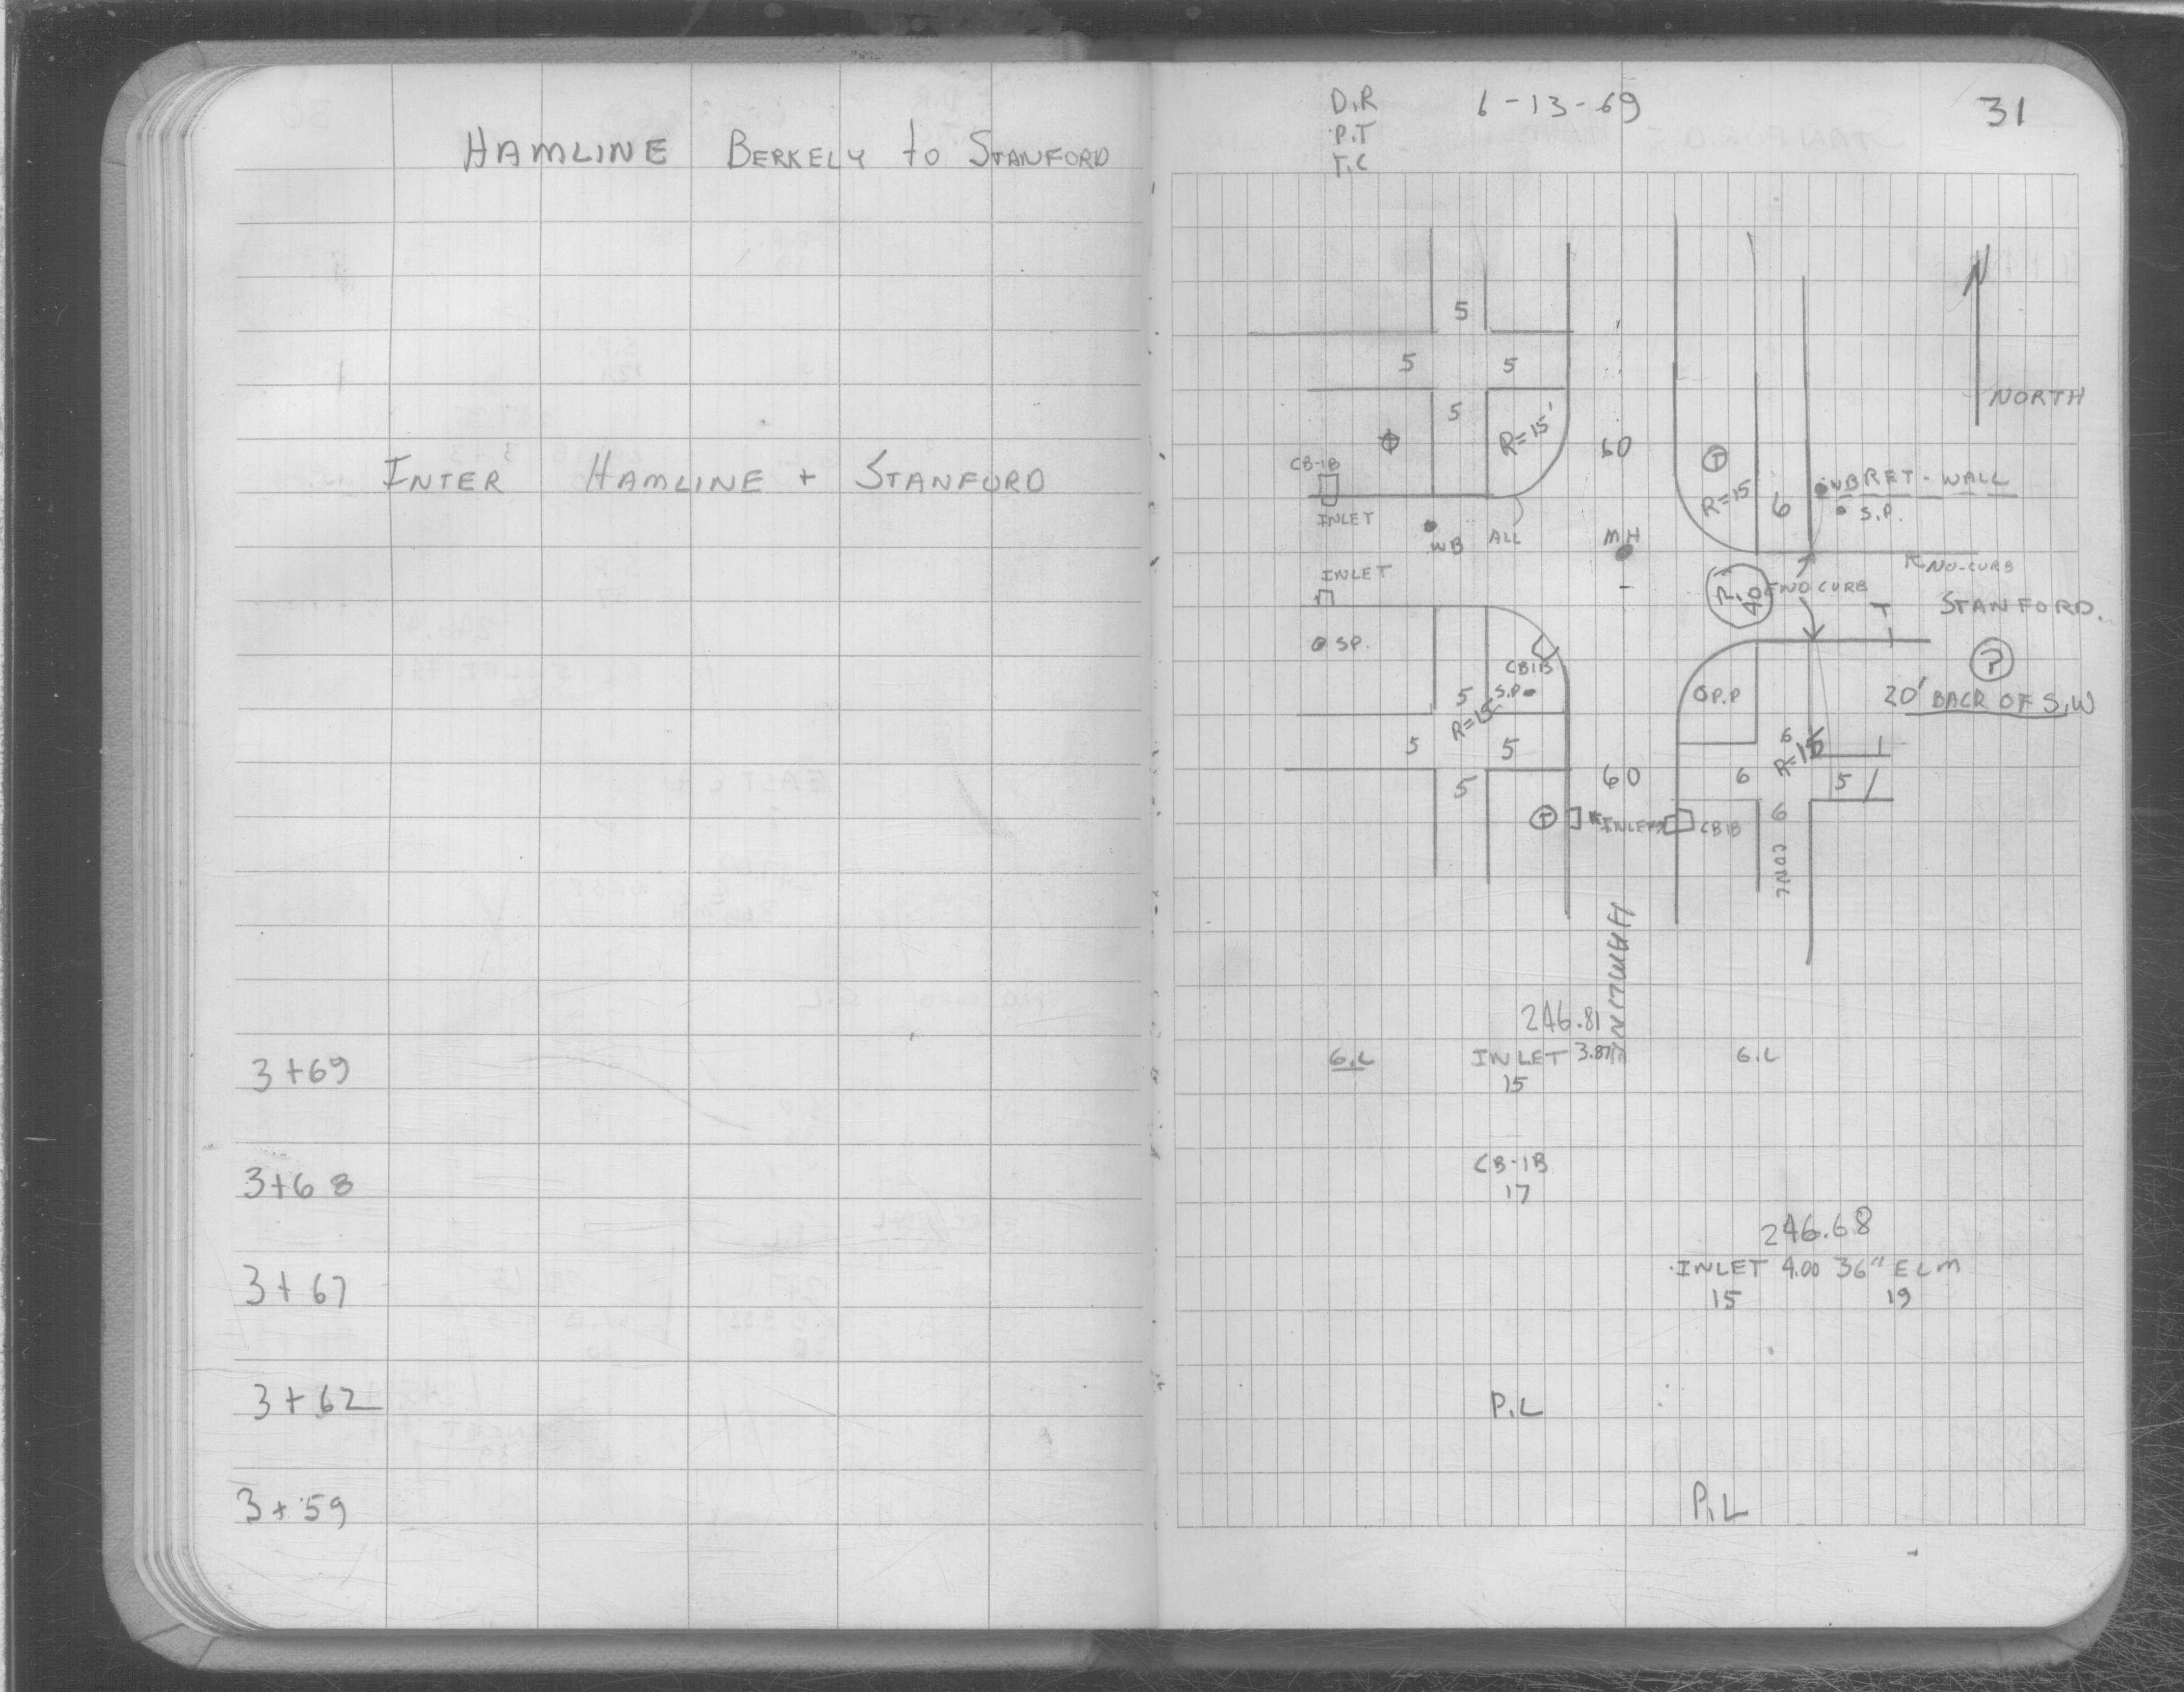 HAMLINE BERKELY to STANFORD
INTER HAMLINE + STANFORD
3+69
3+68
3+67
3+62
3+59
D.R 6-13-69 31
P.T
T.C
5
5 5
5
R=15'
60
NORTH
CB-1B
INLET
WB ALL
MH
T
R=15
6
WB RET-WALL
S.P.
NO-CURB
INLET
40
NO CURB
T STANFORD.
SP.
CB1B
S.P
5
R=15
5 5
5
O P.P
20' BACK OF S.W
6
R=15
6 5
6
60
T INLETS CB1B
CONC
HAMLIN
246.81
G.L INLET 3.87 G.L
15
CB-1B
17
246.68
INLET 4.00 36" ELM
15 19
P.L
P.L